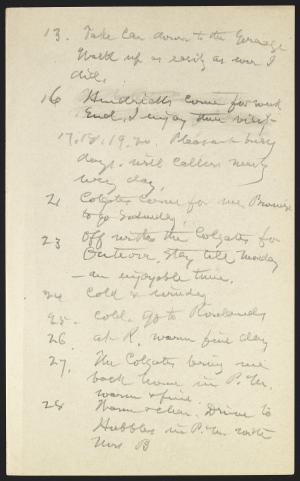 13. Take Car down to the Garage
Walk up as easily as ever I
did.
16 Hendricks come for week
End, I enjoy their visit
17, 18, 19, 20. Pleasant busy
days, with callers nearly
every day.
21 Colgates come for me Promise
to go Saturday.
23 Off with the Colgates for
Stay till Monday
– an enjoyable time.
24 Cold & windy
25. cold. go to Rowlands
26. at R. warm fine day
27. The Colgates bring me
back home in P.M.
warm & fine.
28 Warm & clear. Drive to
Hubbles in P.M. with
Mrs B